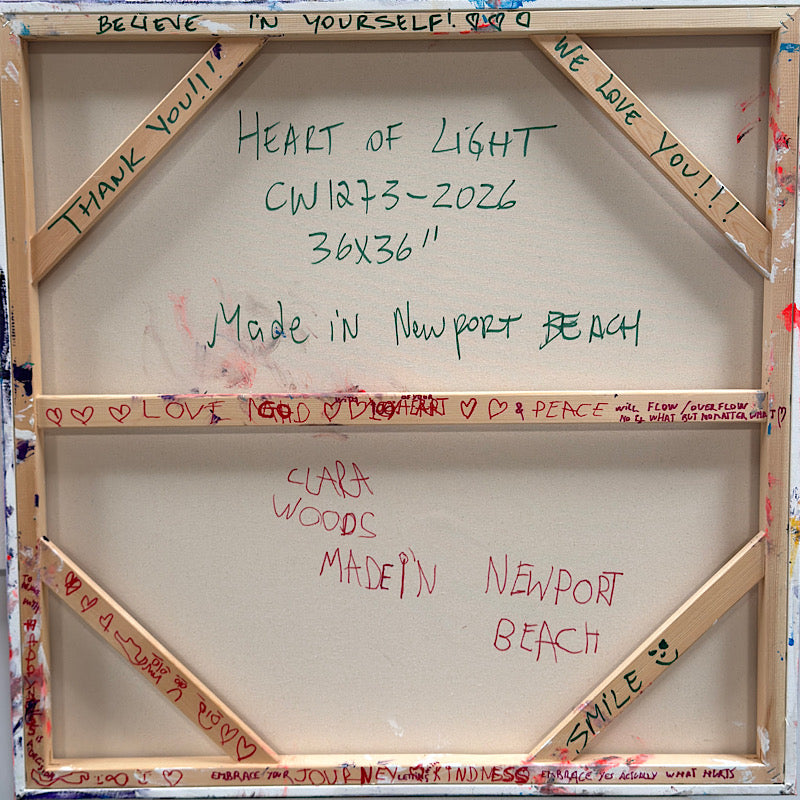 BELIEVE IN YOURSELF!
THANK YOU!!!
WE LOVE YOU!!!
HEART OF LIGHT
CW1273-2026
36X36"
Made in Newport BEACH
LOVE HEART & PEACE WILL FLOW / OVERFLOW
WHAT BUT NO MATTER WHAT
CLARA
WOODS
MADE IN NEWPORT
BEACH
SMILE
EMBRACE YOUR JOURNEY KINDNESS EMBRACE YES ACTUALLY WHAT HURTS